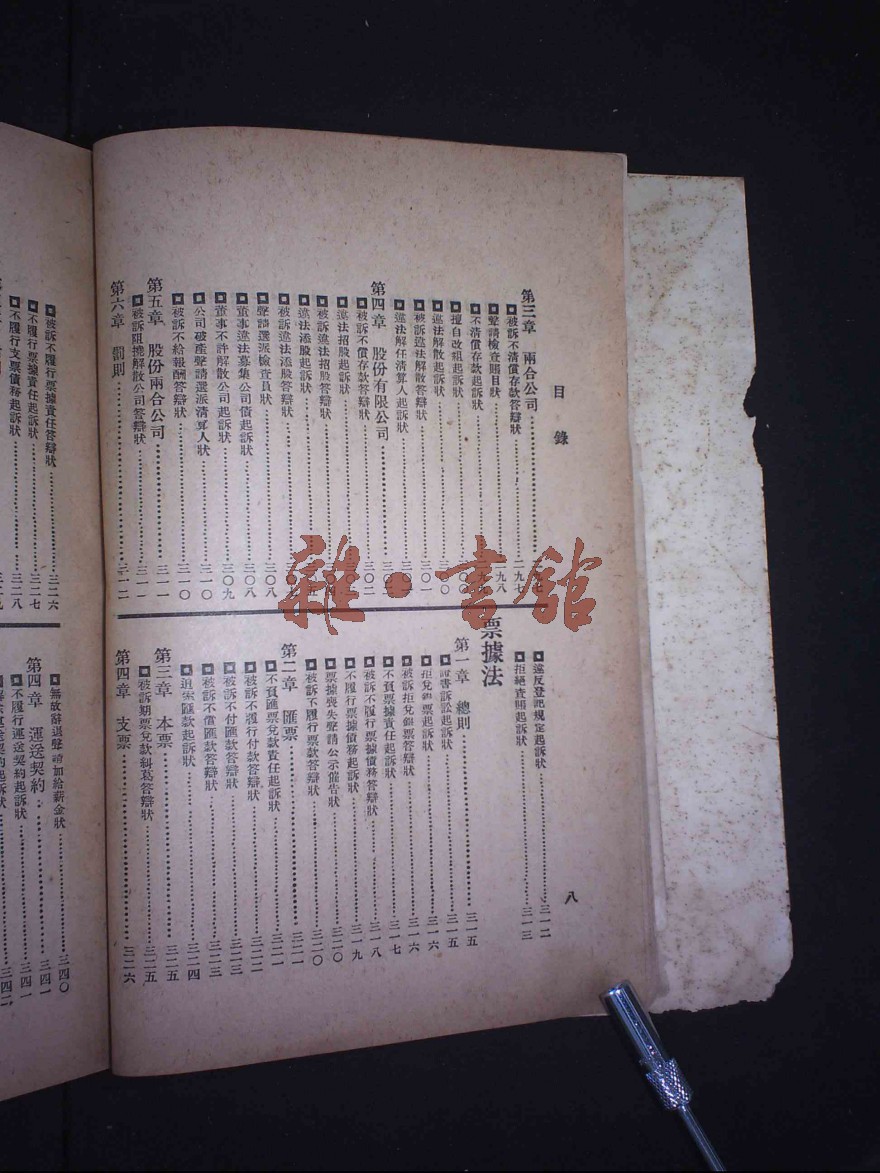 目錄
第三章 兩合公司……二九七
被訴不清償存款答辯狀……二九七
聲請檢查賬目狀……二九八
不清償存款起訴狀……二九九
擅自改組起訴狀……三〇〇
違法解散起訴狀……三〇
被訴違法解散答辯狀……三〇一
違法解任清算人起訴狀……三〇
第四章 股份有限公司……三〇二
被訴不償存款答辯狀……三〇二
違法招股起訴狀
被訴違法招股答辯狀
違法添股起訴狀
被訴違法添股答辯狀
聲請選派檢查員狀……三〇八
董事違法募集公司債起訴狀……三〇八
董事不許解散公司起訴狀……三〇九
公司破產聲請選派清算人狀……三一〇
被訴不給報酬答辯狀……三一〇
第五章 股份兩合公司……三一一
被訴阻撓解散公司答辯狀……三一一
第六章 罰則……三一二
違反登記規定起訴狀……三一二
拒絕查閱起訴狀……三一三
票據法
第一章 總則……三一五
證書訴訟起訴狀……三一五
拒兌鈔票起訴狀……三一六
被訴拒兌鈔票答辯狀……三一六
不負票據責任起訴狀……三一七
被訴不履行票據債務答辯狀……三一八
不履行票據債務起訴狀……三一九
票據喪失聲請公示催告狀……三二〇
被訴不履行票款答辯狀……三二〇
第二章 匯票……三二一
不負匯票兌款責任起訴狀……三二一
被訴不履行付款答辯狀……三二二
被訴不付匯款答辯狀……三二三
被訴不償匯款答辯狀……三二三
追索匯款起訴狀……三二四
第三章 本票……三二五
被訴期票兌款糾葛答辯狀……三二五
第四章 支票……三二六
八
被訴不履行票據責任答辯狀……三二六
不履行票據責任起訴狀……三二七
不履行支票債務起訴狀……三二八
無故辭退聲請加給薪金狀……三四〇
第四章 運送契約……三四一
不履行運送契約起訴狀……三四一
雜·書館